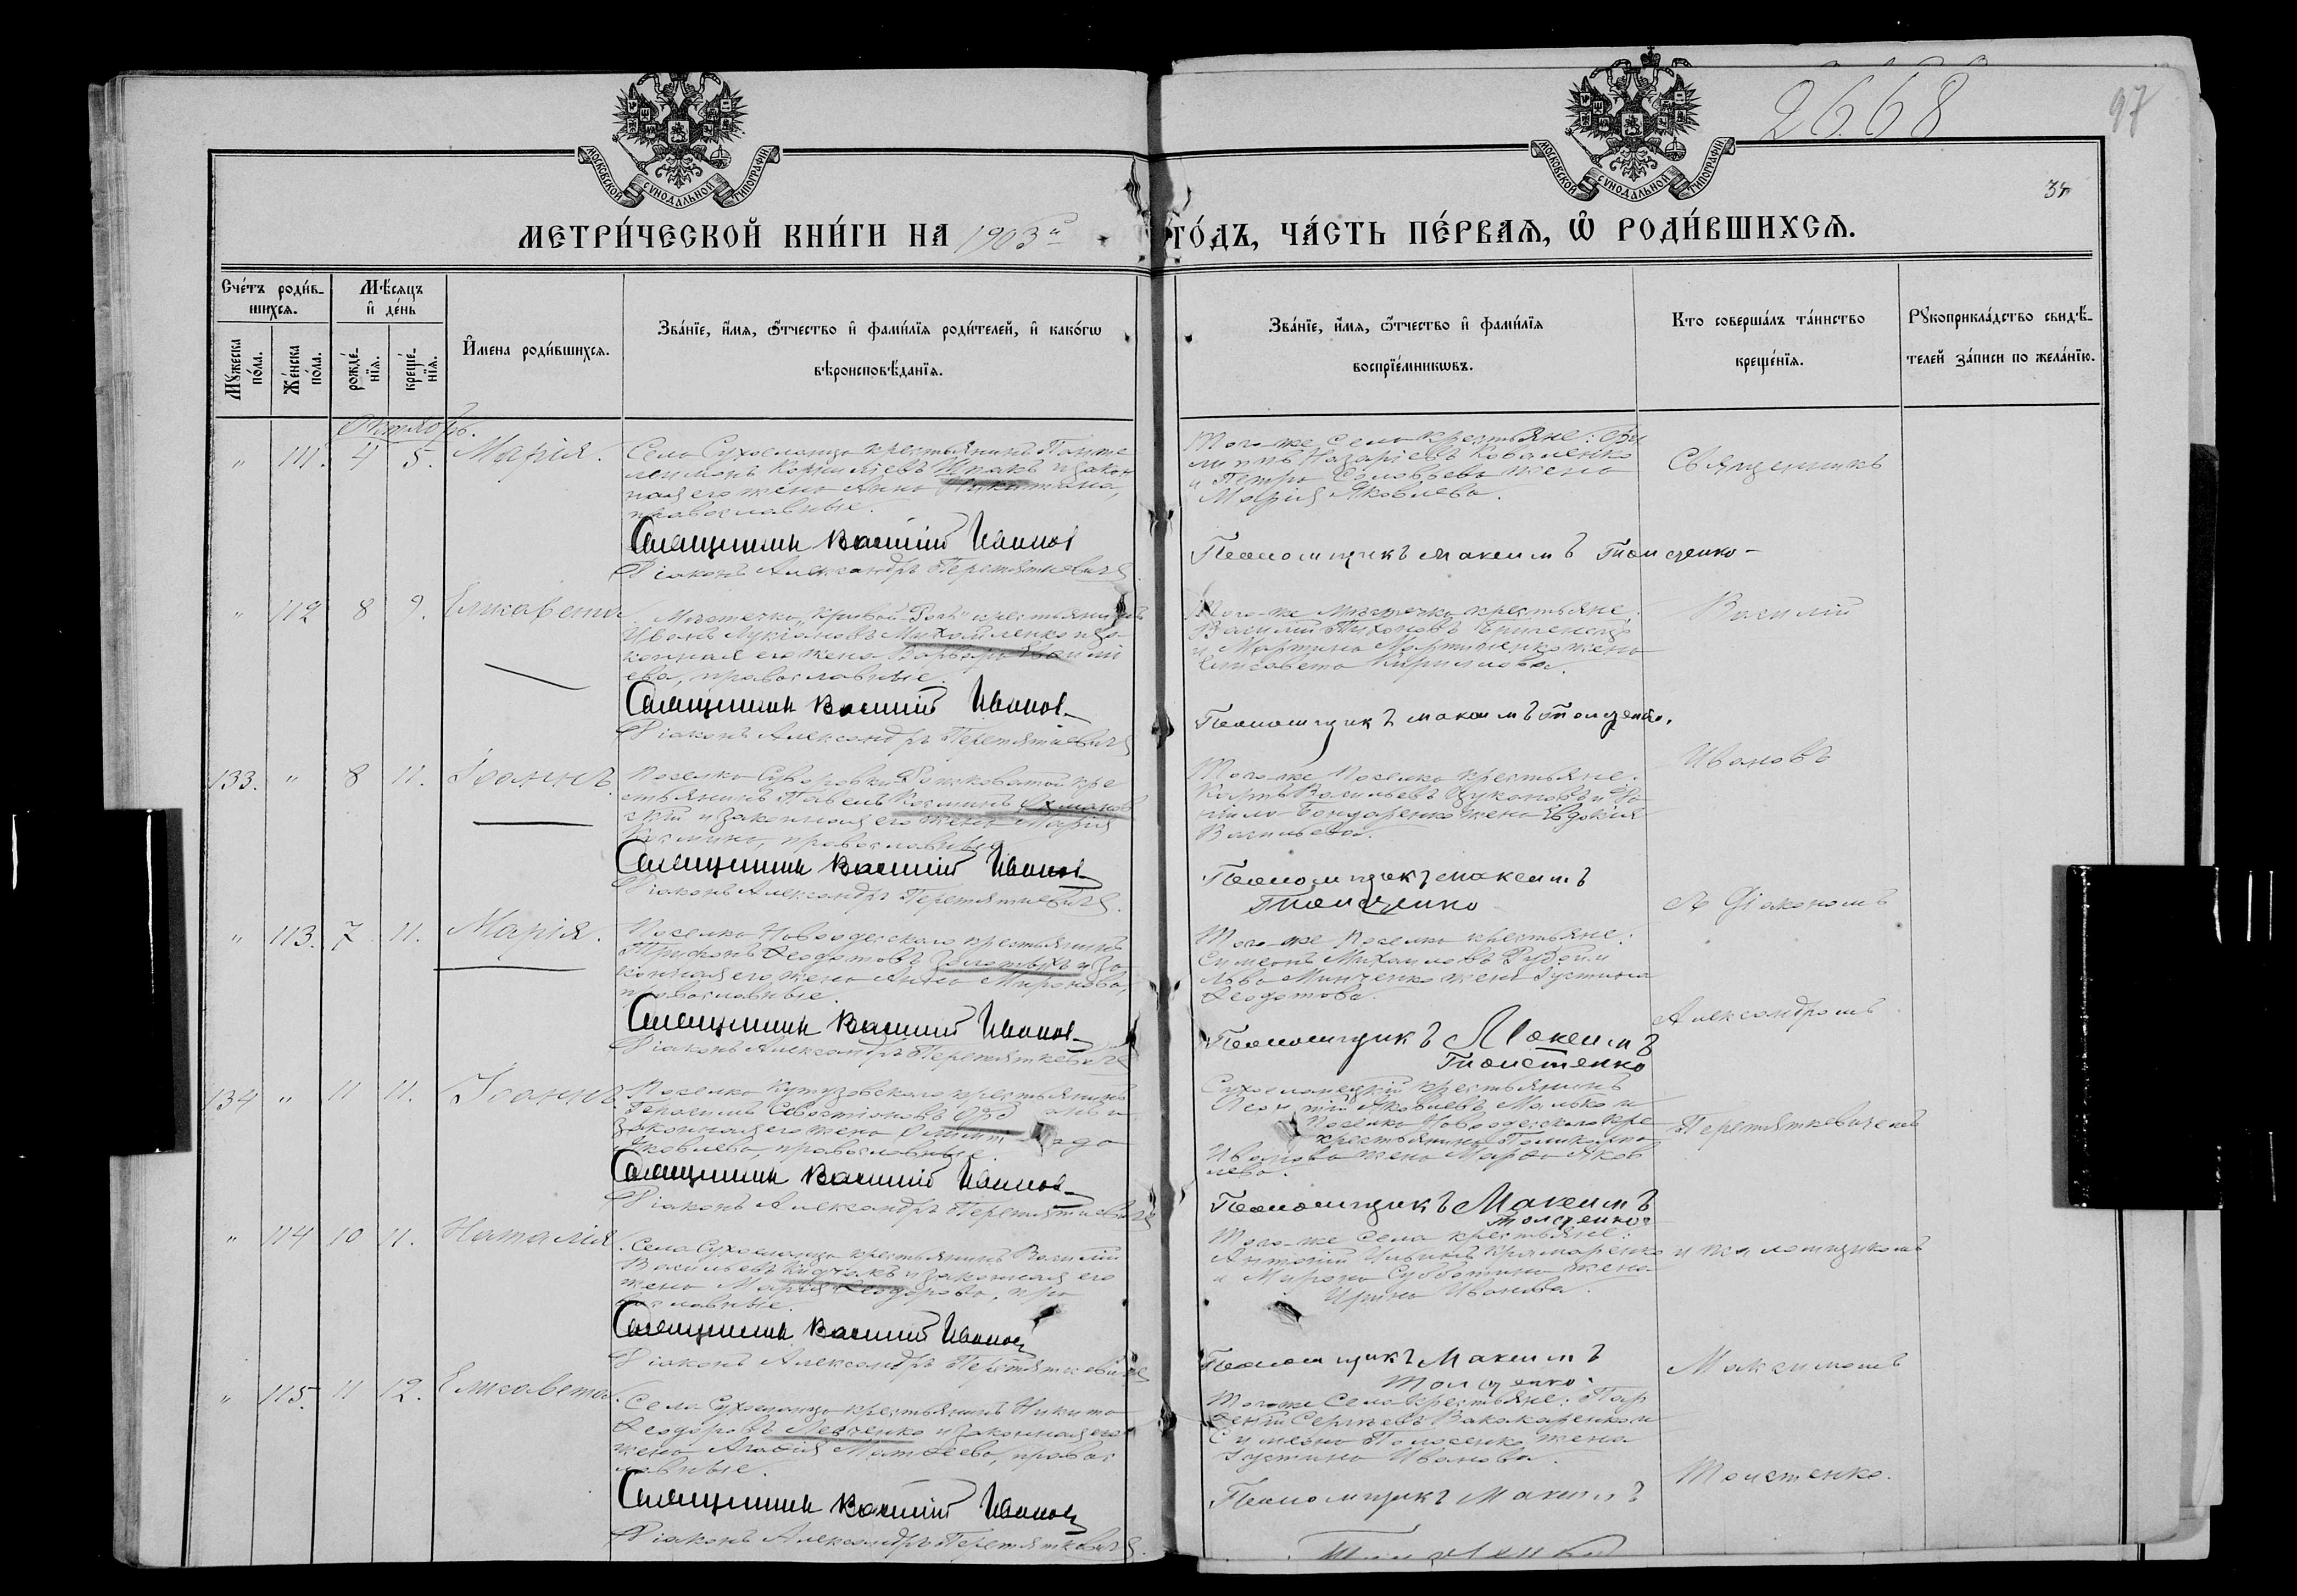 МОСКОВСКОЙ СѴНОДАЛЬНОЙ ТИПОГРАФІИ
МОСКОВСКОЙ СѴНОДАЛЬНОЙ ТИПОГРАФІИ
2668
97
МЕТРИ́ЧЕСКОЙ КНИ́ГИ НА 1903й
ГО́ДЪ, ЧА́СТЬ ПЕ́РВАѦ, Ѡ҆ РОДИ́ВШИХСѦ.
Сче́тъ роди́в-
шихсѧ.
Мꙋ́жеска по́ла.
Же́нска по́ла.
Мѣ́сѧцъ
и҆ де́нь
рожде́-
нїѧ.
креще́-
нїѧ.
И҆мена роди́вшихсѧ.
Зва́нїе, и҆́мѧ, ѻ҆́тчество и҆ фами́лїѧ роди́телей, и҆ како́гѡ
вѣроисповѣ́данїѧ.
Зва́нїе, и҆́мѧ, ѻ҆́тчество и҆ фами́лїѧ
воспрїе́мникѡвъ.
Кто соверша́лъ та́инство
креще́нїѧ.
Рꙋкоприкла́дство свидѣ́-
телей за́писи по жела́нїю.
Октябрь.
" 111. 4 5. Марія.
Села Сухоельца крестьянинъ Панте
леимонъ Корнилiевъ Шпакъ и закон
ная его жена Анна Никитина,
православные.
Священникъ Василій Ивановъ
Діаконъ Александръ Перетяткевичъ
Того-же села крестьяне: Фи
липпъ Назаріевъ Коваленко
и Петра Соловьева жена
Марія Яковлева.
Псаломщикъ Максимъ Толстенко
Священникъ
" 112 8 9. Елисавета
Местечка "Кривой-Рогъ" крестьянинъ
Иванъ Лукіановъ Михайленко и за-
конная его жена Варвара
ева, православные.
Священникъ Василій Ивановъ
Діаконъ Александръ Перетяткевичъ
Того-же местечка крестьяне:
Василій Тихоновъ
и Мартина Мартыненко жена
Елисавета Кириллова.
Псаломщикъ Максимъ Толстенко.
Василій
133. " 8 11. Іоаннъ.
Поселка Суворовки крe
стьянинъ Павелъ Косминъ
скій и законная его жена Марія
Космина, православные.
Священникъ Василій Ивановъ
Діаконъ Александръ Перетяткевичъ.
Того-же поселка крестьяне:
Васильевъ
Бондаренко жена Евдокія
Васильева.
Псаломщикъ Максимъ
Толстенко
Ивановъ
" 113. 7 11. Марія.
Поселка Новоодесского крестьянинъ
Трифонъ Ѳеодотовъ и за
конная его жена Анна Миронова,
православные.
Священникъ Василій Ивановъ
Діаконъ Александръ Перетяткевичъ
Того-же поселка крестьяне:
Симеонъ Михаиловъ и
Льва Минченко жена Іустина
Ѳеодотова.
Псаломщикъ Максимъ
Толстенко
съ Діакономъ
Александромъ
134 " 11 11. Іоаннъ.
Поселка Кутузовского крестьянинъ
Герасимъ Севастіановъ
законная его жена
Яковлева, православные.
Священникъ Василій Ивановъ
Діаконъ Александръ Перетяткевичъ
Сухоелецкій крестьянинъ
Яковлевъ Малько и
поселка Новоодесского кре
крестьянина Поликарпа
Иванова жена Марѳа Яков
лева.
Псаломщикъ Максимъ
Толстенко
Перетяткевичемъ
" 114 10 11. Наталія.
Села Сухоельца крестьянинъ Василій
Васильевъ и законная его
жена Марія Ѳеодорова, пра
вославные.
Священникъ Василій Ивановъ
Діаконъ Александръ Перетяткевичъ
Того-же села крестьяне:
Антоній Ильинъ Крамаренко
и Мирона Субботина жена
Ирина Иванова.
Псаломщикъ Максимъ
Толстенко.
и псаломщикомъ
Максимомъ
" 115. 11 12. Елисавета.
Села Сухоельца крестьянинъ Никита
Ѳеодоровъ Левченко и законная его
жена Агаѳія Матѳеева, правос
лавные.
Священникъ Василій Ивановъ
Діаконъ Александръ Перетяткевичъ.
Того-же села крестьяне: Пар
ѳеній Сергѣевъ и
Симеона жена
Іустина Иванова.
Псаломщикъ Максимъ
Толстенко
Толстенко.